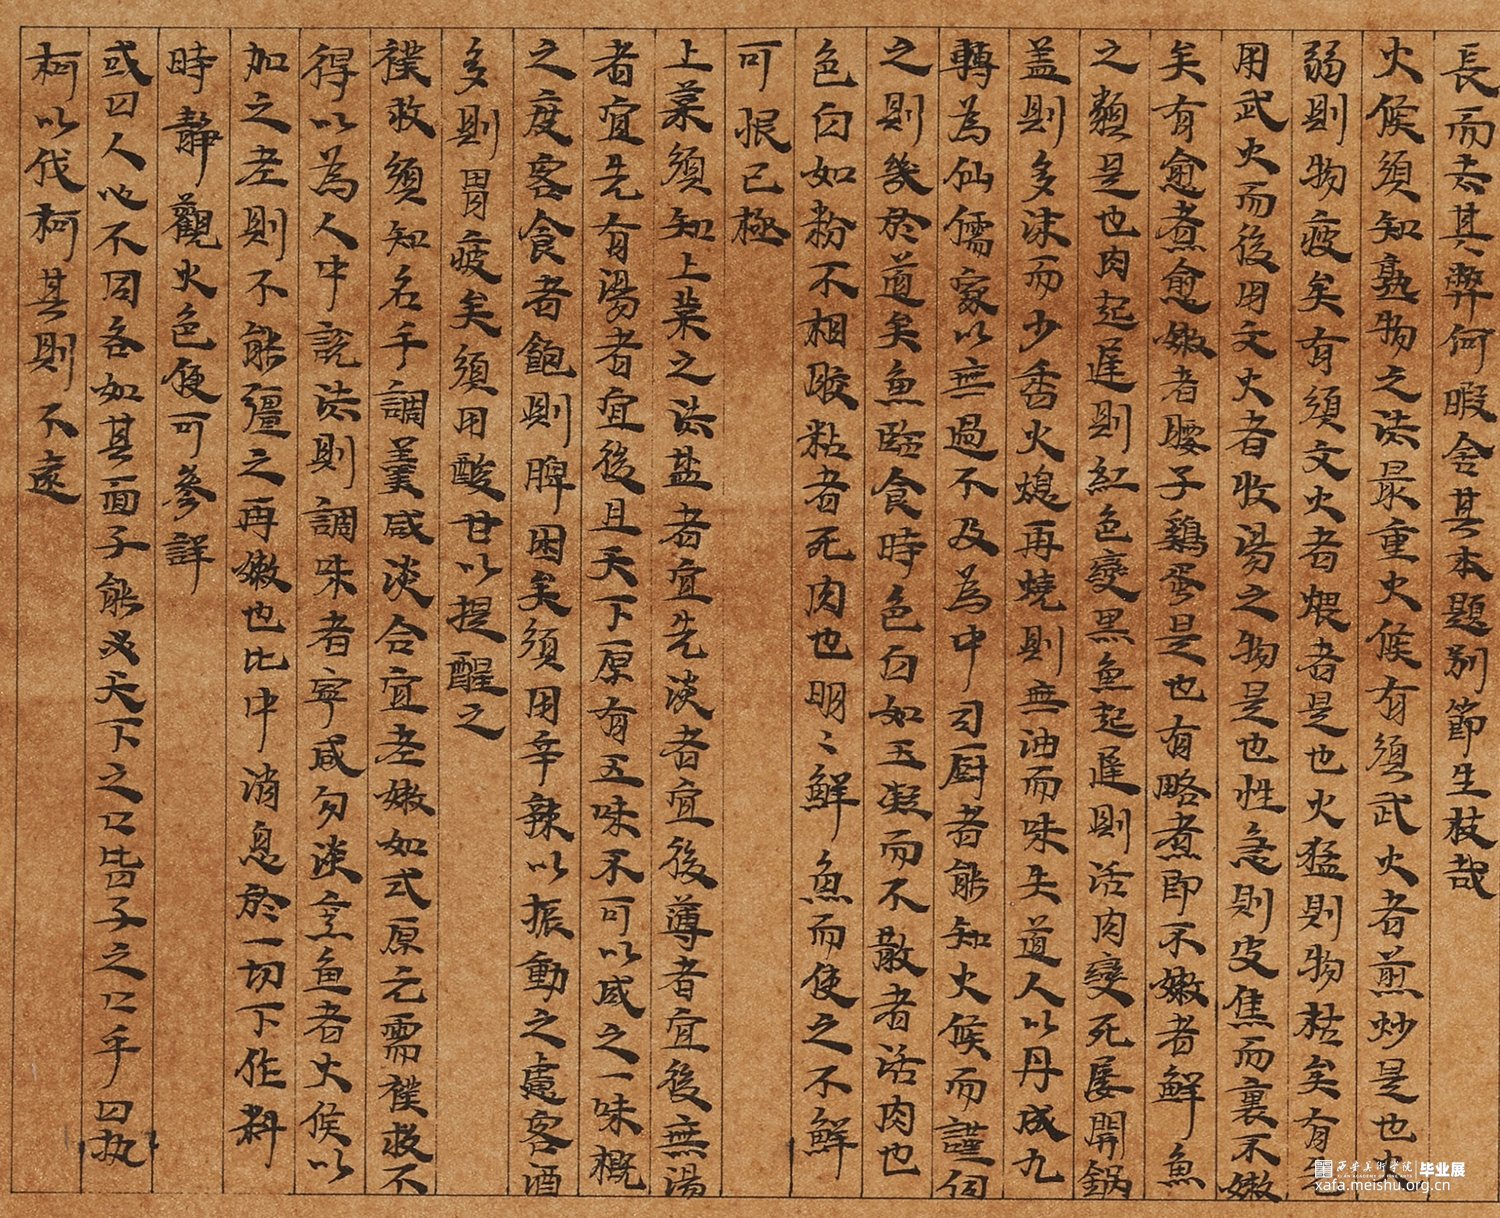 長而去其弊何暇舍其本題別節生枝哉
火候須知熟物之法最重火候有須武火者煎炒是也火
弱則物疲矣有須文火者煨者是也火猛則物枯矣有
用武火而後用文火者收湯之物是也性急則皮焦而裏不嫩
矣有愈煮愈嫩者腰子鷄蛋是也有略煮即不嫩者鮮魚
之類是也肉起遲則紅色變黑魚起遲則活肉變死屡開鍋
盖則多沫而少香火熄再燒則無油而味失道人以丹成九
轉為仙儒家以無過不及為中司厨者能知火候而謹伺
之則幾於道矣魚臨食時色白如玉凝而不散者活肉也
色白如粉不相膠粘者死肉也明〻鮮魚而使之不鮮
可恨已極
上菜須知上菜之法盐者宜先淡者宜後薄者宜後無湯
者宜先有湯者宜後且天下原有五味不可以咸之一味概
之度客食者飽則脾困矣須用辛辣以振動之慮客酒
多則胃疲矣須用酸甘以提醒之
襆救須知名手調羹咸淡合宜老嫩如式原无需襆救不
得以為人中說法則調味者寧咸勿淡烹鱼者火侯以
加之老則不能彊之再嫩也比中消息於一切下作料
時靜觀火色便可參詳
或曰人心不同各如其面子能必天下之口皆子之口乎曰执
柯以伐柯其則不遠
西安美術学院 毕业展
xafa.meishu.org.cn